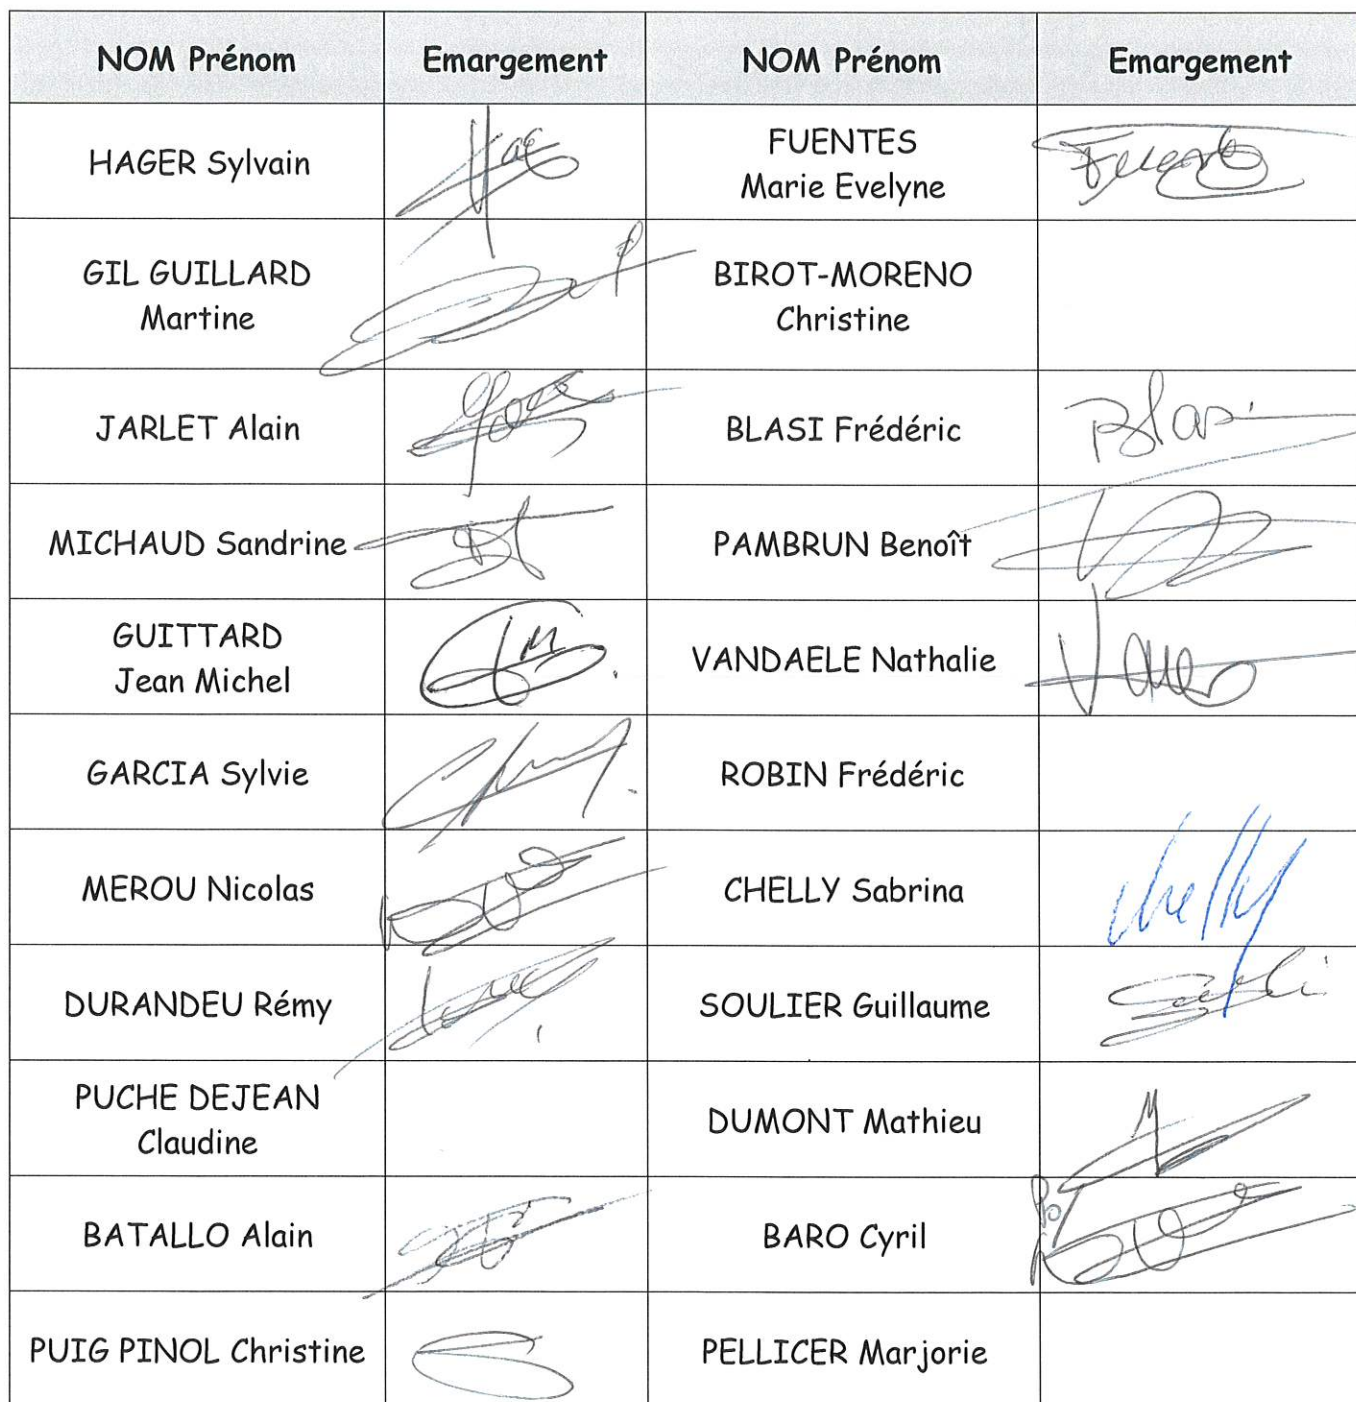 NOM Prénom Emargement NOM Prénom Emargement
HAGER Sylvain
FUENTES
Marie Evelyne
GIL GUILLARD
Martine
BIROT-MORENO
Christine
JARLET Alain
BLASI Frédéric
Blasi
MICHAUD Sandrine
PAMBRUN Benoît
GUITTARD
Jean Michel
VANDAELE Nathalie
GARCIA Sylvie
ROBIN Frédéric
MEROU Nicolas
CHELLY Sabrina
Chelly
DURANDEU Rémy
SOULIER Guillaume
PUCHE DEJEAN
Claudine
DUMONT Mathieu
BATALLO Alain
BARO Cyril
PUIG PINOL Christine
PELLICER Marjorie